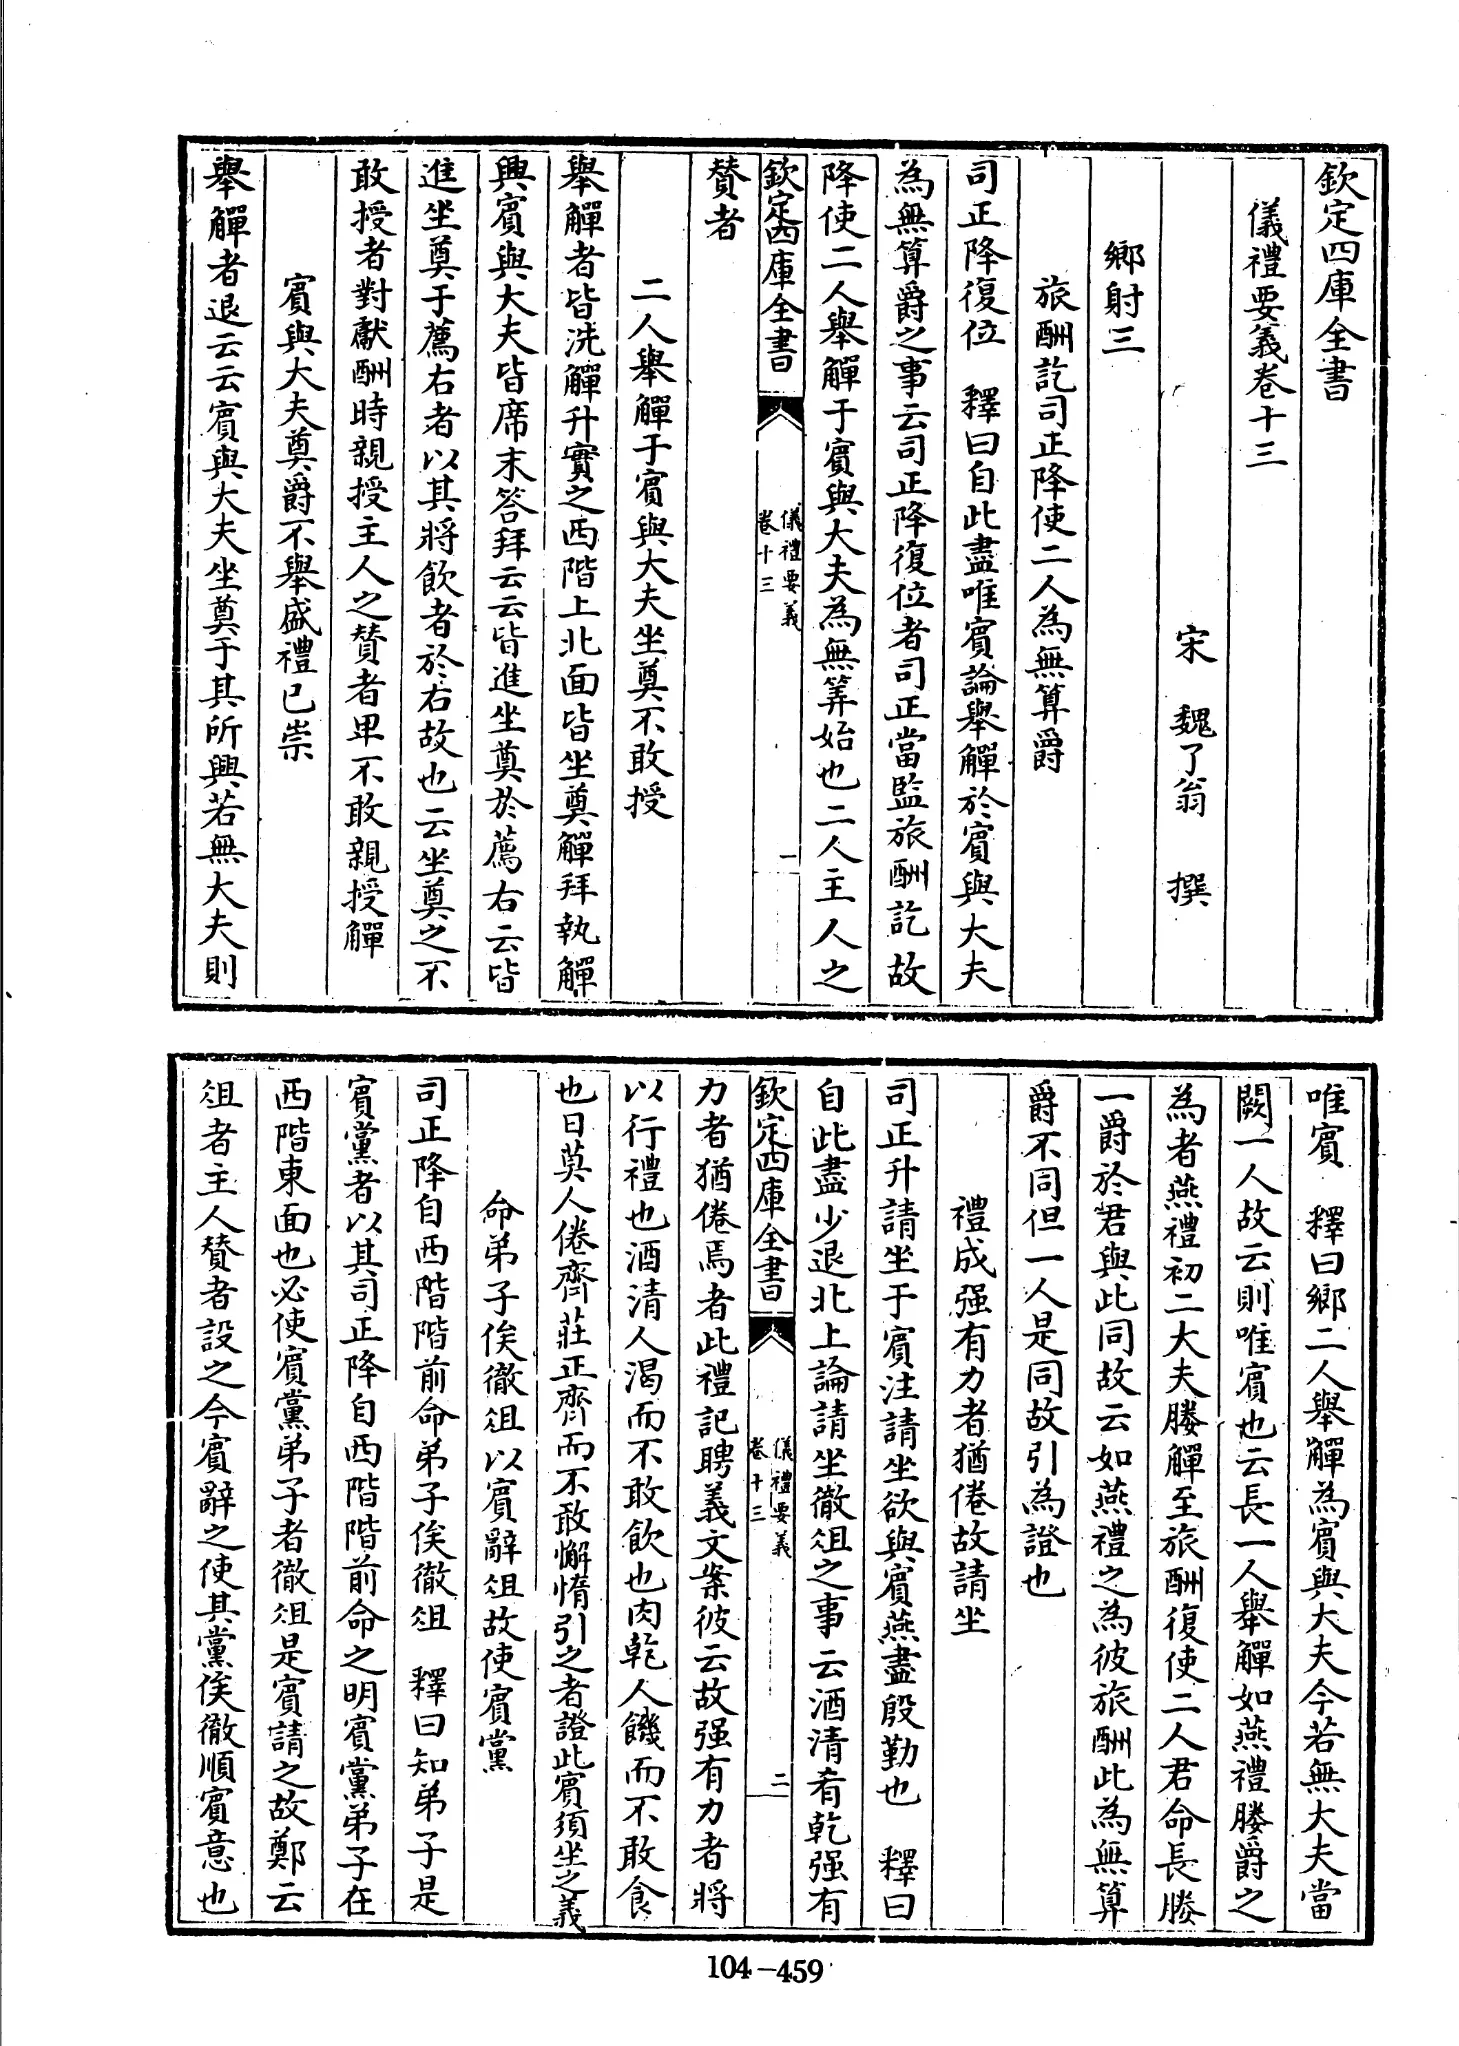 欽定四庫全書
儀禮要義卷十三
宋　魏了翁　撰
鄉射三
旅酬訖司正降使二人為無算爵
司正降復位　釋曰自此盡唯賓論舉觶於賓與大夫
為無算爵之事云司正降復位者司正當監旅酬訖故
降使二人舉觶于賓與大夫為無筭始也二人主人之
欽定四庫全書
儀禮要義
卷十三
一
贊者
二人舉觶于賓與大夫坐奠不敢授
舉觶者皆洗觶升實之西階上北面皆坐奠觶拜執觶
興賓與大夫皆席末答拜云云皆進坐奠於薦右云皆
進坐奠于薦右者以其將飲者於右故也云坐奠之不
敢授者對獻酬時親授主人之贊者卑不敢親授觶
賓與大夫奠爵不舉盛禮已崇
舉觶者退云云賓與大夫坐奠于其所興若無大夫則
唯賓　釋曰鄉二人舉觶為賓與大夫今若無大夫當
闕一人故云則唯賓也云長一人舉觶如燕禮媵爵之
為者燕禮初二大夫媵觶至旅酬復使二人君命長媵
一爵於君與此同故云如燕禮之為彼旅酬此為無算
爵不同但一人是同故引為證也
禮成强有力者猶倦故請坐
司正升請坐于賓注請坐欲與賓燕盡殷勤也　釋曰
自此盡少退北上論請坐徹俎之事云酒清肴乾强有
欽定四庫全書
儀禮要義
卷十三
二
力者猶倦焉者此禮記聘義文案彼云故强有力者將
以行禮也酒清人渴而不敢飲也肉乾人饑而不敢食
也日莫人倦齊莊正齊而不敢懈惰引之者證此賓須坐之義
命弟子俟徹俎以賓辭俎故使賓黨
司正降自西階階前命弟子俟徹俎　釋曰知弟子是
賓黨者以其司正降自西階階前命之明賓黨弟子在
西階東面也必使賓黨弟子者徹俎是賓請之故鄭云
俎者主人贊者設之今賓辭之使其黨俟徹順賓意也
104-459